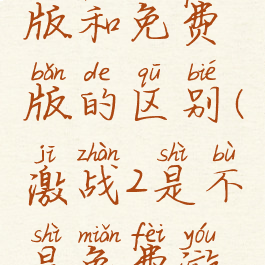 版和免费
bǎn de qū bié
版的区别(
jī zhàn shì bù
激战2是不
shì miǎn fèi yóu
是免费游